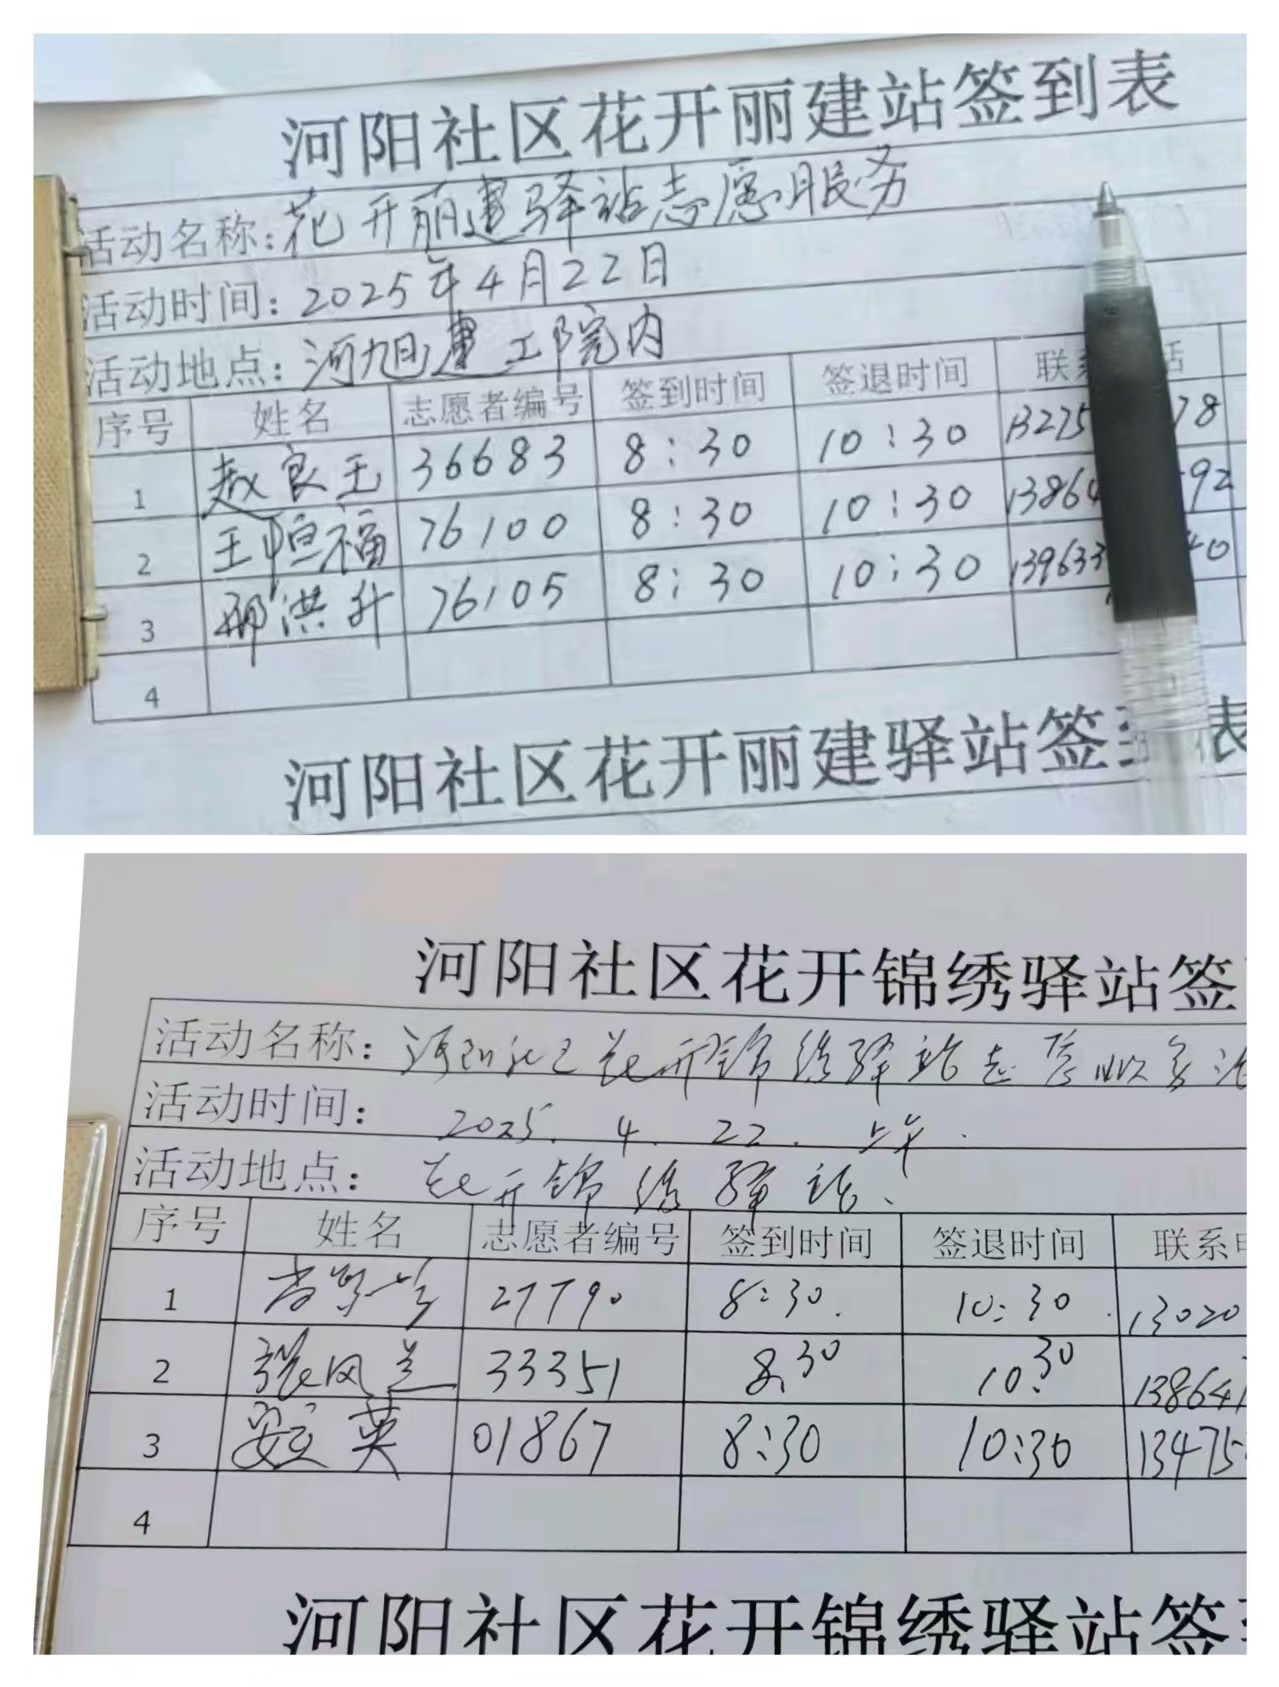 河阳社区花开丽建站签到表
活动名称:花开丽建驿站志愿服务
活动时间:2025年4月22日
活动地点:河旭建工院内
序号 姓名 志愿者编号 签到时间 签退时间 联 话
1 赵良玉 36683 8:30 10:30 13275 78
2 王恒福 76100 8:30 10:30 13864 92
3 邢洪升 76105 8:30 10:30 139633 40
4
河阳社区花开丽建驿站签 表
河阳社区花开锦绣驿站签
活动名称:河阳社区花开锦绣驿站志愿服务活
活动时间: 2025.4.22.上午.
活动地点: 花开锦绣驿站.
序号 姓名 志愿者编号 签到时间 签退时间 联系
1 27790 8:30. 10:30. 13020
2 张风兰 33351 8:30 10:30 13864
3 安立英 01867 8:30 10:30 13475
4
河阳社区花开锦绣驿站签